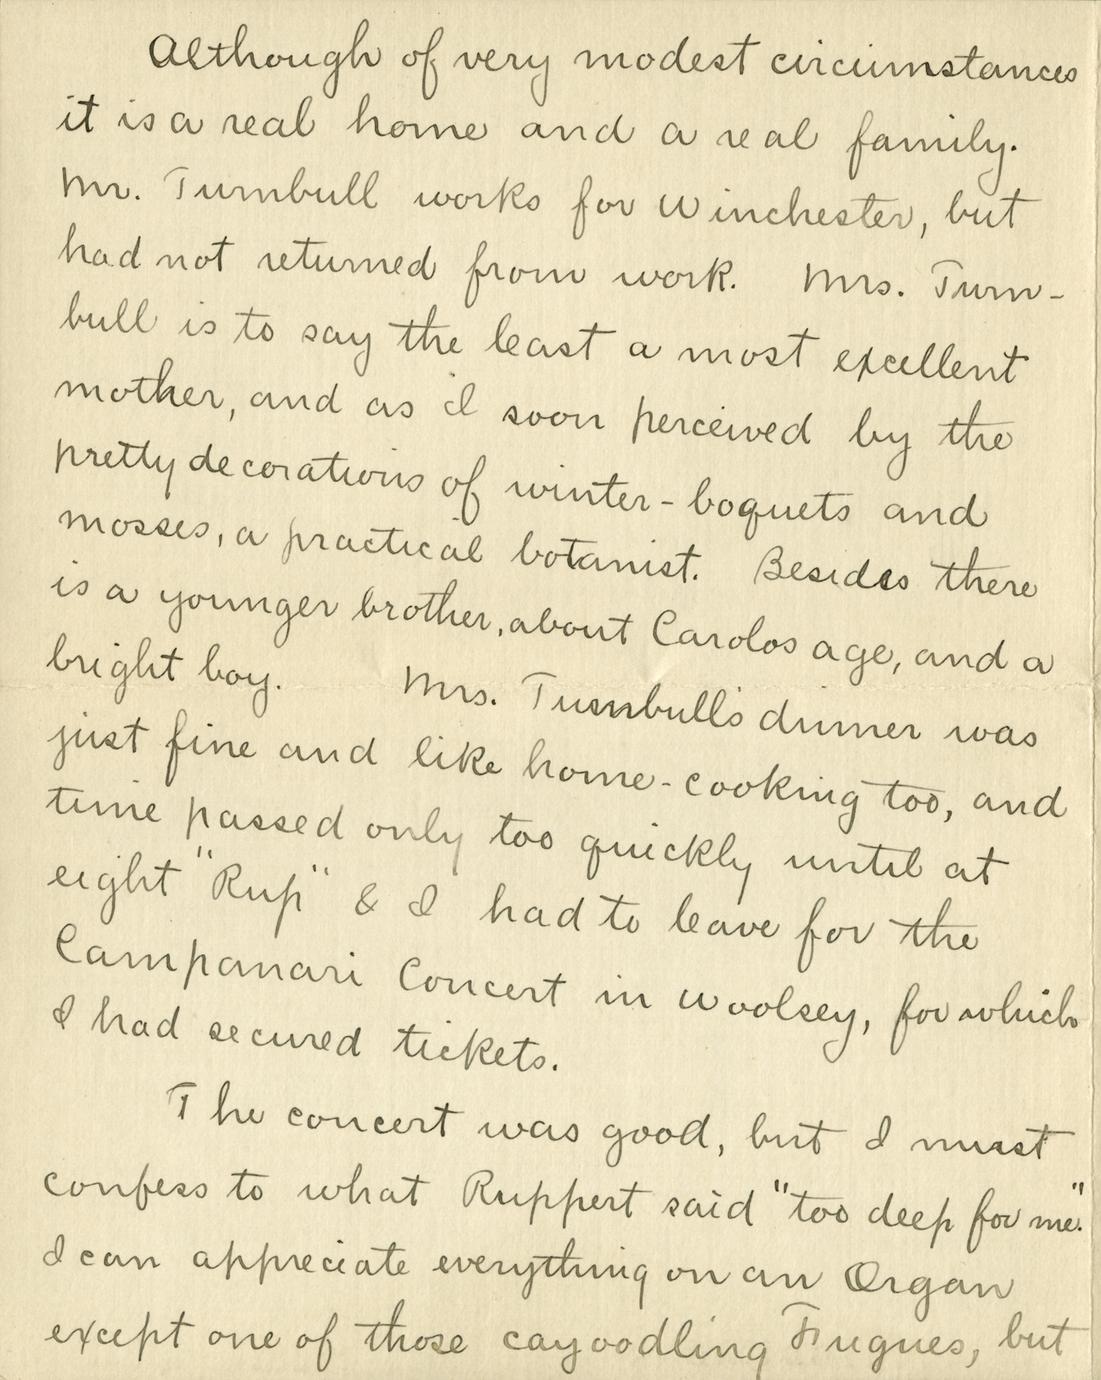 Although of very modest circumstances
it is a real home and a real family.
Mr. Turnbull works for Winchester, but
had not returned from work. Mrs. Turn-
bull is to say the least a most excellent
mother, and as I soon perceived by the
pretty decorations of winter-boquets and
mosses, a practical botanist. Besides there
is a younger brother, about Carolos age, and a
bright boy. Mrs. Turnbull's dinner was
just fine and like home-cooking too, and
time passed only too quickly until at
eight "Rup" & I had to leave for the
Campanari Concert in Woolsey, for which
I had secured tickets.
The concert was good, but I must
confess to what Ruppert said "too deep for me."
I can appreciate everything on an Organ
except one of those cayoodling Fugues, but